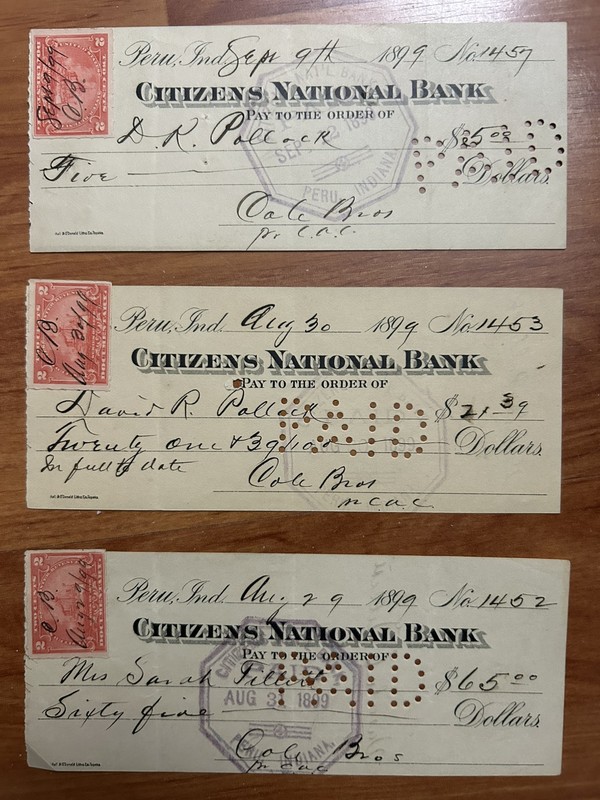 Peru, Ind. Sept 9th 1899 No. 1457
CITIZENS NATIONAL BANK
PAY TO THE ORDER OF
D. R. Pollock $5.00
Five Dollars.
Cole Bros
pr C.A.C.
Sept 9/99
C.B.
PERU, INDIANA.
PAID
Peru, Ind. Aug 30 1899 No. 1453
CITIZENS NATIONAL BANK
PAY TO THE ORDER OF
David R. Pollock $21.39
Twenty one & 39/100 Dollars.
In full to date
Cole Bros
pr C.A.C.
C.B.
Aug 30/99
PAID
Peru, Ind. Aug 29 1899 No. 1452
CITIZENS NATIONAL BANK
PAY TO THE ORDER OF
Mrs Sarah $65.00
Sixty five Dollars.
Cole Bros
pr CAC
C B
Aug 29/99
1899
PERU, INDIANA.
PAID